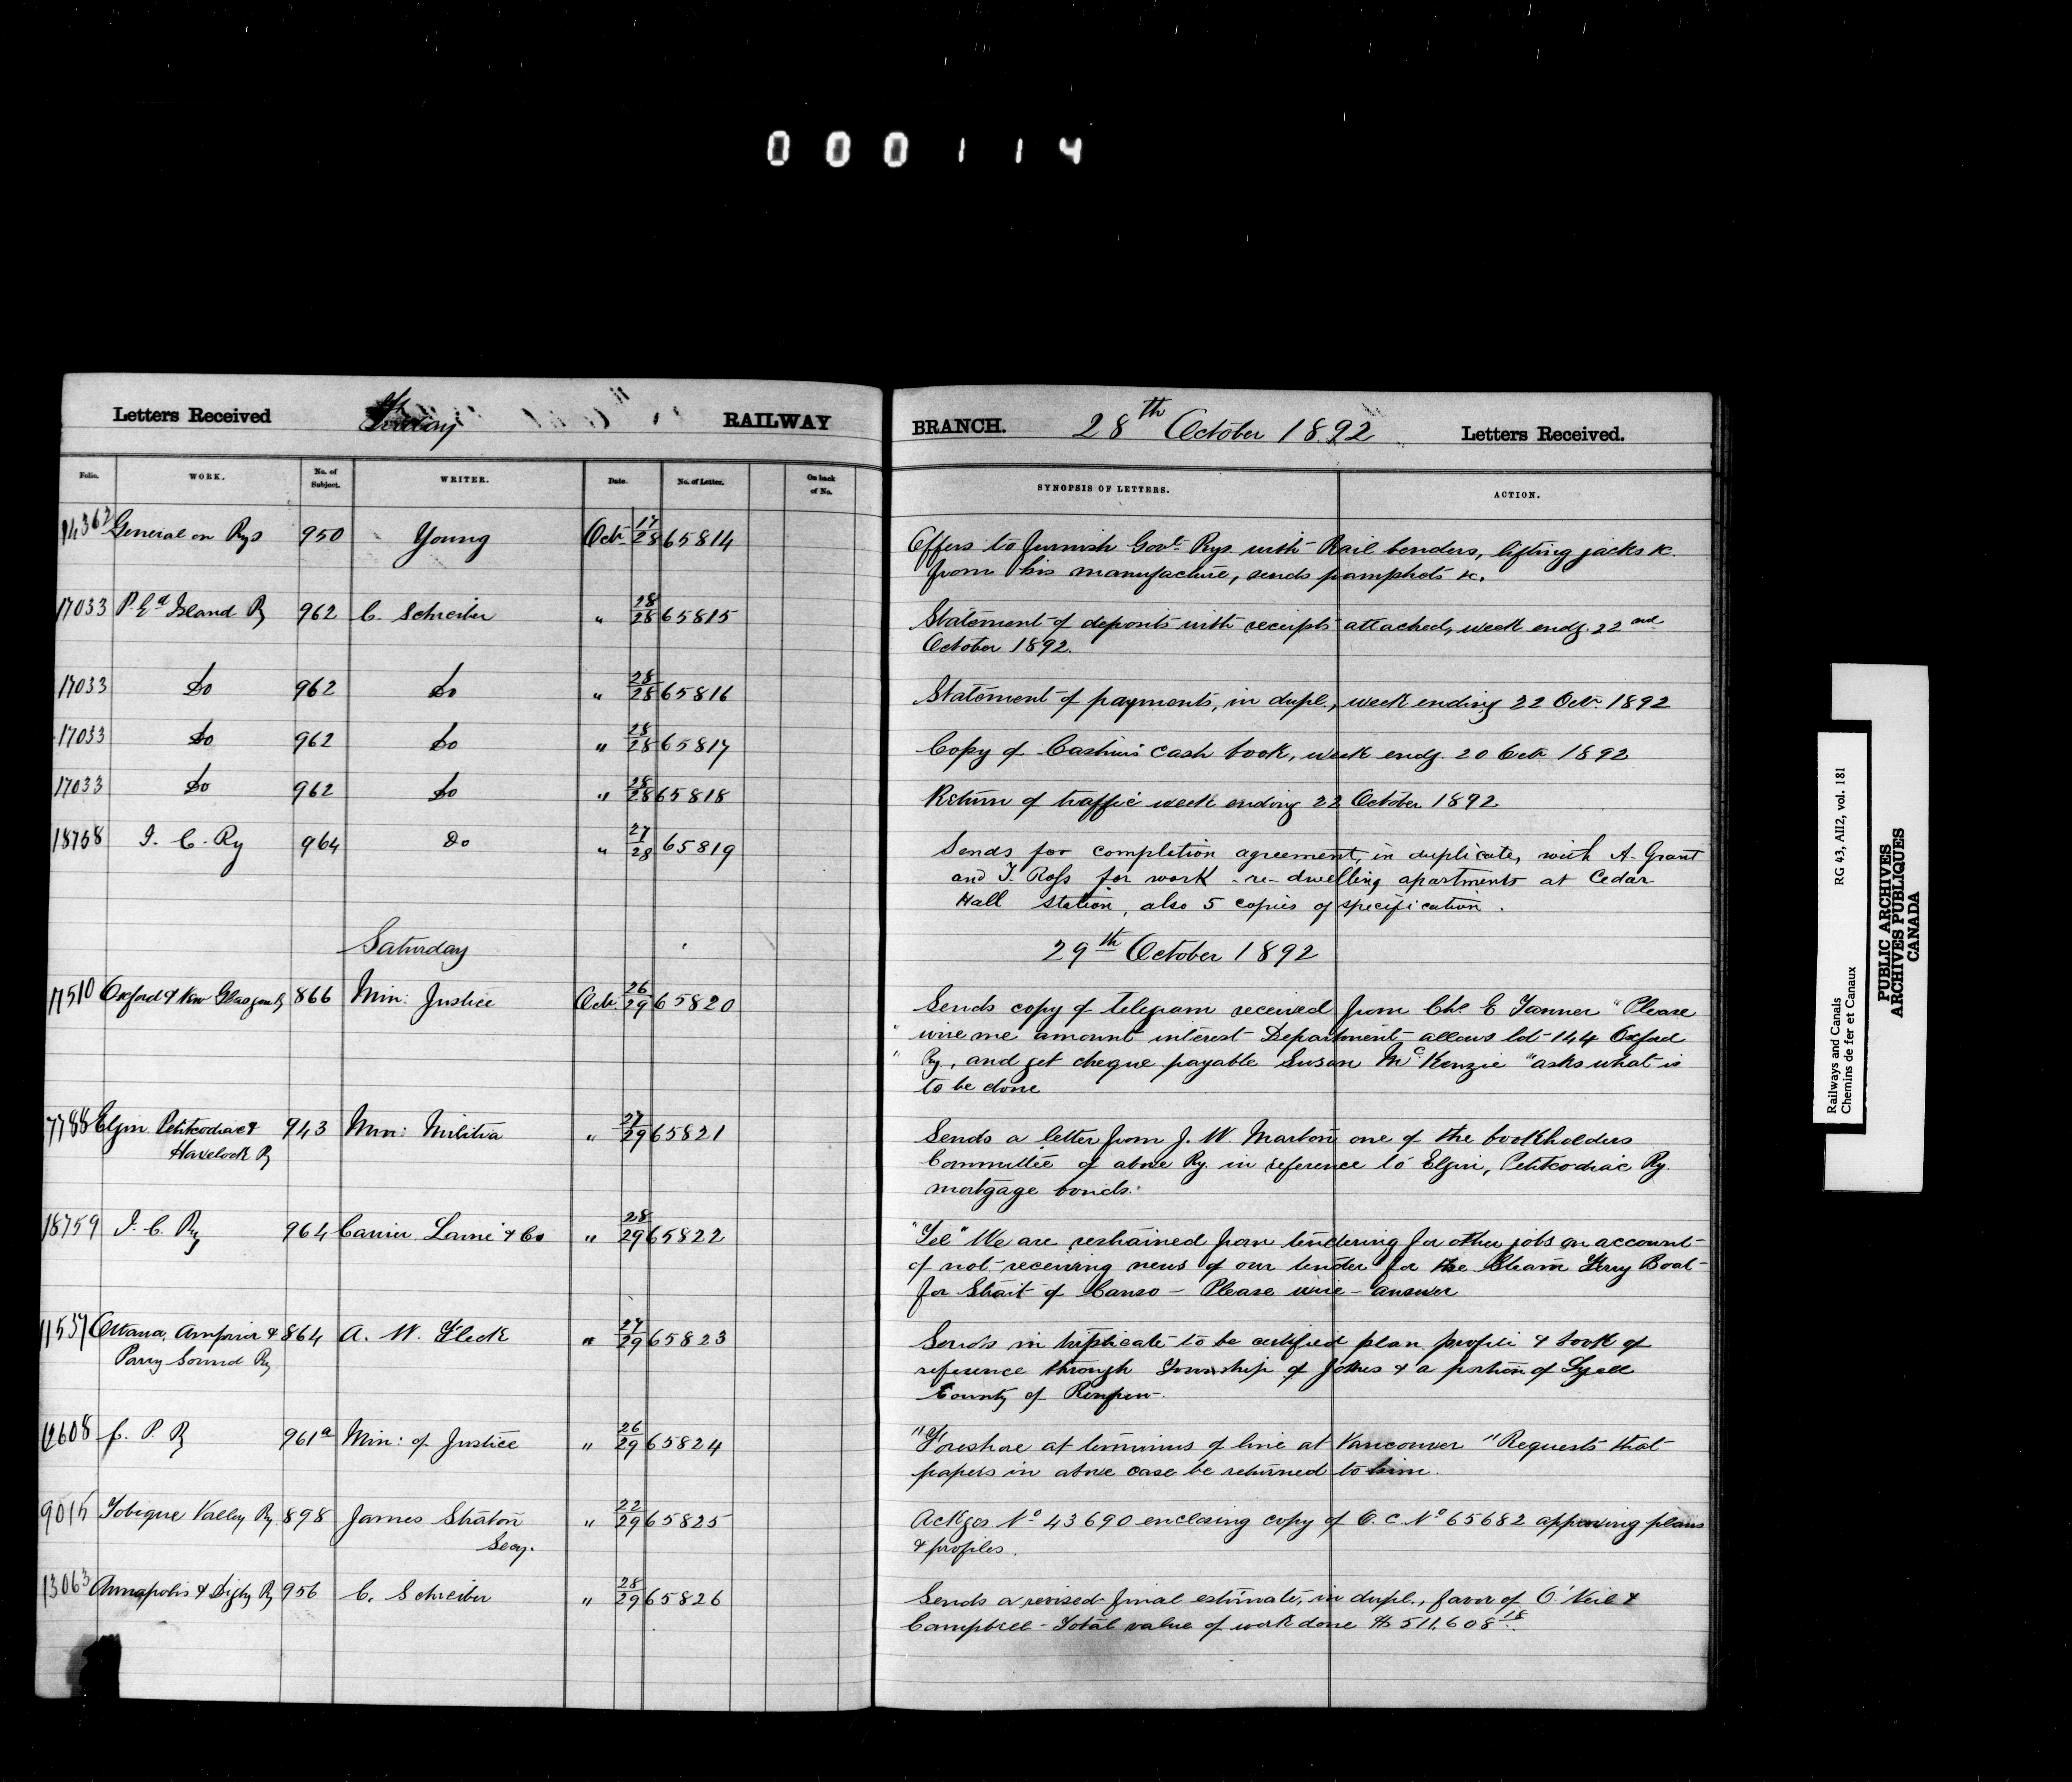 0 0 0 1 1 4
Letters Received Friday RAILWAY BRANCH. 28th October 1892 Letters Received.
Folio. WORK. No. of Subject. WRITER. Date. No. of Letter. On back of No. SYNOPSIS OF LETTERS. ACTION.
General on Rys 950 Young Oct. 17/28 65814 Offers to furnish Govt. Rys. with Rail benders, lifting jacks &c.
from his manufacture, sends pamphets &c.
17033 P. Ed Island Ry 962 C. Schreiber " 28/28 65815 Statement of deposits with receipts attached, week endg. 22nd
October 1892.
17033 Do 962 Do " 28/28 65816 Statement of payments, in dupl., week ending 22 Oct. 1892
17033 Do 962 Do " 28/28 65817 Copy of Cashiers cash book, week endg. 20 Oct. 1892
17033 Do 962 Do " 28/28 65818 Return of traffic week ending 22 October 1892.
18758 I. C. Ry 964 Do " 27/28 65819 Sends for completion agreement, in duplicate, with A. Grant
and T. Ross for work -re- dwelling apartments at Cedar
Hall Station, also 5 copies of specification.
Saturday 29th October 1892
17510 Oxford & New Glasgow Ry 866 Min: Justice Oct. 26/29 65820 Sends copy of telegram received from Chs. E Tanner "Please
" wire me amount interest Department allows lot 144 Oxford
" Ry., and get cheque payable Susan McKenzie" asks what is
to be done
7788 Elgin Petitcodiac & 943 Min: Militia " 27/29 65821 Sends a letter from J. W. Marton one of the bookholders
Havelock Ry Committee of above Ry. in reference to Elgin, Petitcodiac Ry.
mortgage bonds.
18759 I. C. Ry 964 Carrier Lainé & Co " 28/29 65822 "Tel" We are restrained from tendering for other jobs on account
of not receiving news of our tender for the Steam Ferry Boat
for Strait of Canso - Please wire - answer
11537 Ottawa, Arnprior & 864 A. W. Fleck " 27/29 65823 Sends in triplicate to be certified plan profile & book of
Parry Sound Ry reference through Township of Jones & a portion of Lyell
County of Renfrew.
12608 C. P. R 961a Min: of Justice " 26/29 65824 "Foreshore at terminus of line at Vancouver" Requests that
papers in above case be returned to him.
Tobique Valley Ry. 898 James Straton " 22/29 65825 Ackges No 43690 enclosing copy of O. C. No 65682 approving plans
Secy. & profiles.
13063 Annapolis & Digby Ry 956 C. Schreiber " 28/29 65826 Sends a revised final estimate, in dupl., favor of O'Neil &
Campbell - Total value of work done $511,608 18.
Railways and Canals RG 43, AII2, vol. 181
Chemins de fer et Canaux
PUBLIC ARCHIVES
ARCHIVES PUBLIQUES
CANADA